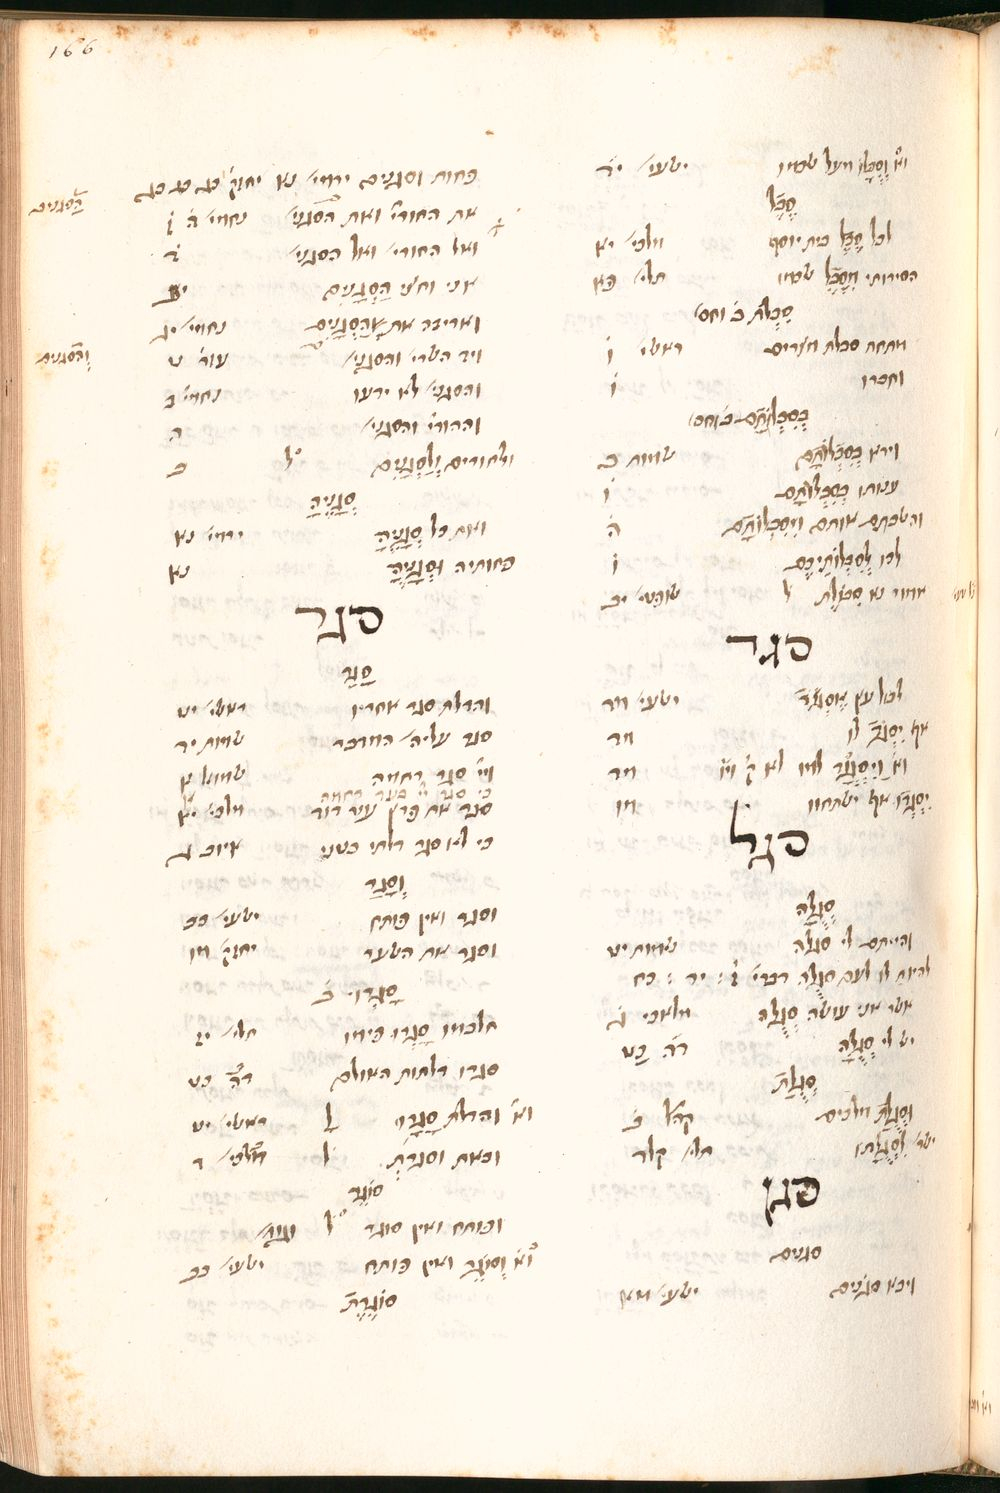 166
וא֗ וְסֻבֳּלוֹ מעל שכמו ישעי׳ יד
סֵבֶל
לכל סֵבֶל בית יוסף מלכי׳ יא
הסירותי מִסֵּבֶל שכמו תלי׳ פא
סִבְלֹת ב׳ וחס׳
מתחת סבלת מצרים ראשי׳ ו
וחברו ו
בְּסִבְלֹתָם ב׳ וחס׳
וירא בְּסִבְלוֹתָם שמות ב
ענותו בְּסִבְלוֹתָם ו
והשבתם אותם מִסִּבְלוֹתָם ה
לכו לְסִבְלוֹתֵיכֶם ו
אמור נא סִבֹּלֶת ל שופטי׳ יב
סגד
לבול עץ אֶסְגּוֹד ישעי׳ מד
אף יִסְגָּד לו מד
וא֗ וַיִּסְגֻּד למו לא ק׳ מד
יִסְגְּדוּ אף ישתחוו מו
סגל
סְגֻלָּה
והייתם לי סגלה שמות יט
להיות לו לעם סגלה דברי׳ ז׃ יד׃ כח
אשר אני עושה סְגֻלָּה מלאכי ג
יש לי סְגֻלָּה דה֗ כט
סְגֻלַּת
וּסְגֻלַּת מלכים קהל ב
ישר׳ לִסְגֻלָּתוֹ תלי׳ קלה
סגן
סגנים
ויבא סגנים ישעי׳ מא
פחות וסגנים ירמי׳ נא יחזק׳ כג כג כג
הַסְּגָנִים
את החורי׳ ואת הסגני׳ נחמי׳ ה ז
ואל החורי׳ ואל הסגני׳ ד
אני וחצי הַסְּגָנִים יב
ואריבה את הַסְּגָנִים נחמי׳ יג
וְהַסְּגָנִים
ויד השרי׳ והסגני׳ עזר׳ ט
והסגני׳ לא ידעו נחמי׳ ב
והחורי׳ והסגני׳ ה
ולחורים וְלַסְּגָנִים ל֗ ב
סְגָנֶיהָ
ואת כל סְגָנֶיהָ ירמי׳ נא
פחותיה וּסְגָנֶיהָ נא
סגר
סָגַר
והדלת סגר אחריו ראשי׳ יט
סגר עליה׳ המדבר שמות יד
ויי׳ סגר רחמה שמואל א
כי סגר יי׳ בעד רחמה
סגר את פרץ עיר דוד מלכי׳ יא
כי לא סגר דלתי בטני איוב ג
וְסָגַר
וסגר ואין פותח ישעי׳ כב
וסגר את השער יחזק׳ מו
סָגְרוּ ב
חלבמו סָגְרוּ פימו תלי׳ יז
סגרו דלתות האולם דה֗ כט
וא֗ והדלת סָגָרוּ ל ראשי׳ יט
ובאת וסגרת ל מלכי׳ ד
סוֹגֵר
ופותח ואין סוגר ל֗
וא֗ וְסוֹגֵר ואין פותח ישעי׳ כב
סוֹגֶרֶת